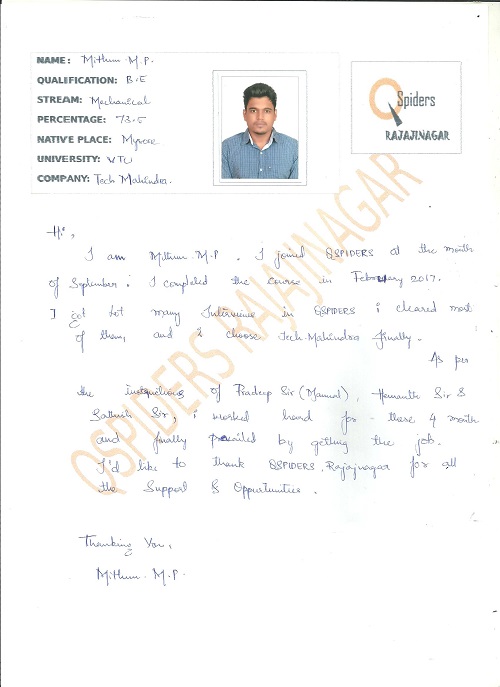 NAME: Mithun M.P.
QUALIFICATION: B.E
STREAM: Mechanical
PERCENTAGE: 73.5
NATIVE PLACE: Mysore
UNIVERSITY: VTU
COMPANY: Tech Mahindra.
QSpiders
RAJAJINAGAR
Hi,
I am Mithun M.P. I joined QSPIDERS at the month
of September. I completed the course in February 2017.
I got lot many Interviews in QSPIDERS i cleared most
of them, and I choose Tech-Mahindra finally.
As per
the instructions of Pradeep Sir (Manual), Hemanth Sir &
Sathish Sir, i worked hard for these 4 month
and finally by getting the job.
I'd like to thank QSPIDERS, Rajajnagar for all
the Support & Opportunities.
Thanking You,
Mithun M.P.
QSPIDERS RAJAJINAGAR